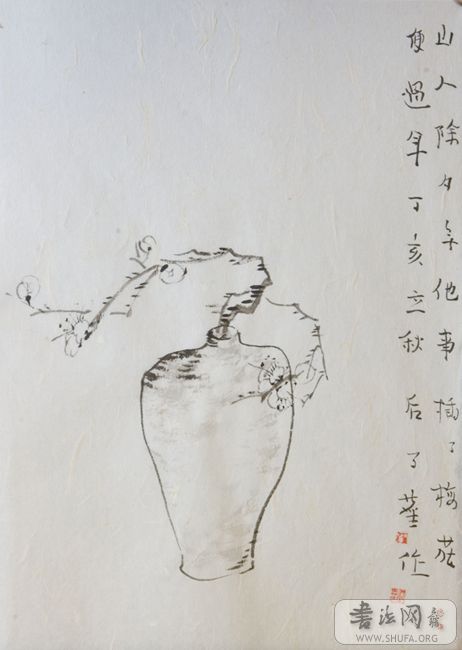 山人除夕无他事插了梅花
便過年丁亥立秋后了作
書法网
WWW.SHUFA.ORG